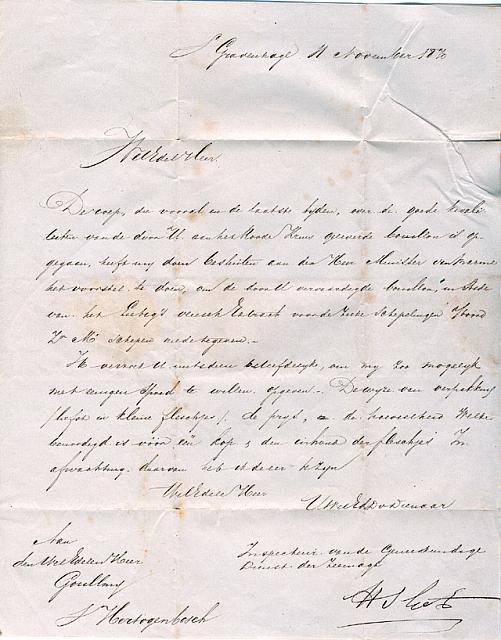 s' Gravenhage 11 November 1870
WelEdele Heer.
De roep, die vooral in de laatste tijden, over de goede kwali
teiten van de door U aan het Roode Kruis geleverde bouillon is op-
gegaan, heeft mij doen besluiten aan den Heer Minister van Marine
het voorstel te doen, om de door U vervaardigde bouillon, in stede
van het Liebig's vleesch Extract voor de zieke Schepelingen a/boord
Zr Ms Schepen mede te geven.-
Ik verzoek U mitsdien beleefdelijk, om mij zoo mogelijk
met eenigen spoed te willen opgeven.- De wijze van verpakking
(liefst in kleine fleschjes), de prijs, de hoeveelheid welke
benoodigd is voor één kop & den inhoud der fleschjes In
afwachting hiervan heb ik de eer te zijn
WelEdele Heer
UWelEd Dv Dienaar
Inspecteur van de Geneeskundige
Dienst der Zeemagt
Aan
den WelEdelen Heer
s' Hertogenbosch